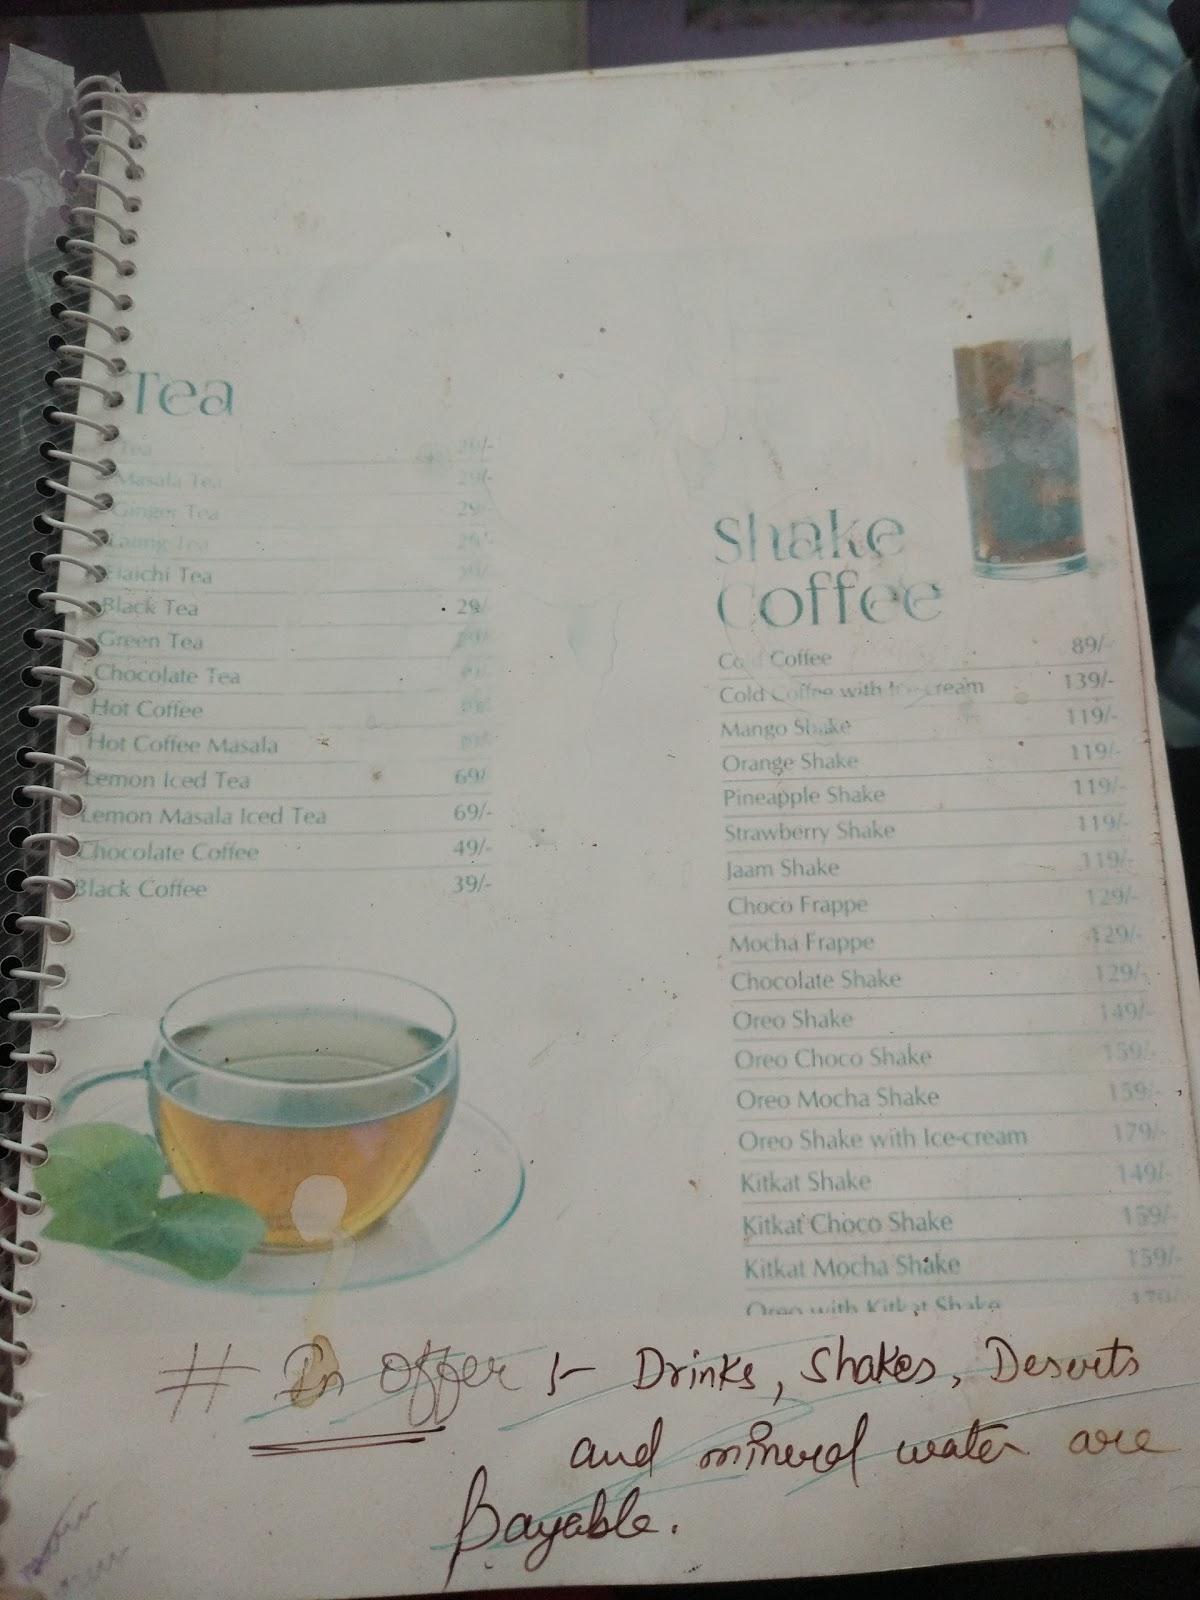 Tea
Tea 29/-
Masala Tea 29/-
Ginger Tea 29/-
Laung Tea 29/-
Elaichi Tea
Black Tea 29/
Green Tea
Chocolate Tea
Hot Coffee
Hot Coffee Masala
Lemon Iced Tea 69/
Lemon Masala Iced Tea 69/-
Chocolate Coffee 49/-
Black Coffee 39/-
Shake
Coffee
Cold Coffee 89/-
Cold Coffee with Ice-cream 139/-
Mango Shake 119/-
Orange Shake 119/-
Pineapple Shake 119/-
Strawberry Shake 119/-
Jaam Shake 119/-
Choco Frappe 129/-
Mocha Frappe 129/-
Chocolate Shake 129/-
Oreo Shake 149/-
Oreo Choco Shake 159/-
Oreo Mocha Shake 159/-
Oreo Shake with Ice-cream 179/-
Kitkat Shake 149/-
Kitkat Choco Shake 159/-
Kitkat Mocha Shake 159/-
Oreo with Kitkat Shake
# In offer :- Drinks, Shakes, Deserts
and mineral water are
Payable.